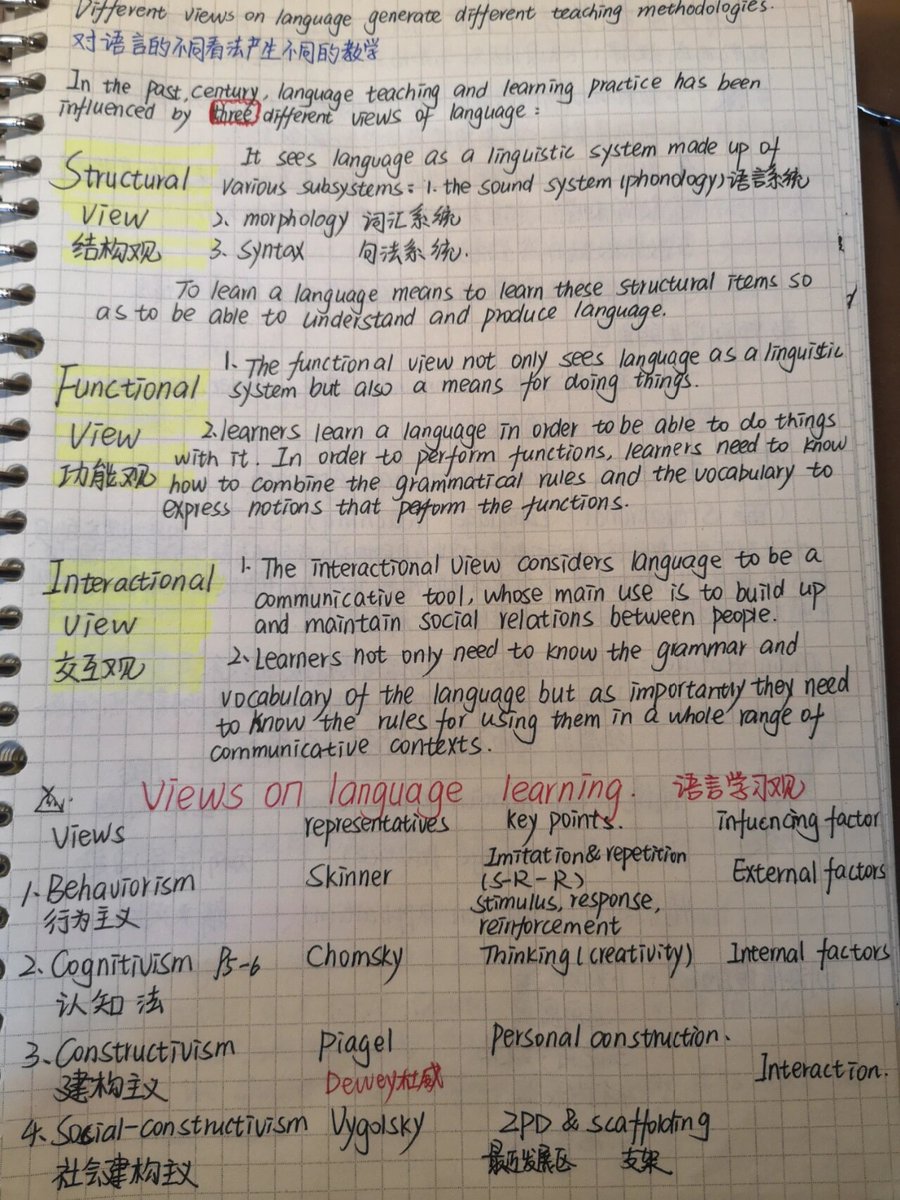 Different views on language generate different teaching methodologies.
对语言的不同看法产生不同的教学
In the past century, language teaching and learning practice has been
influenced by three different views of language:
Structural
View
结构观
It sees language as a linguistic system made up of
various subsystems: 1. the sound system (phonology) 语言系统
2. morphology 词汇系统
3. syntax 句法系统.
To learn a language means to learn these structural items so
as to be able to understand and produce language.
Functional
View
功能观
1. The functional view not only sees language as a linguistic
system but also a means for doing things.
2. learners learn a language in order to be able to do things
with it. In order to perform functions, learners need to know
how to combine the grammatical rules and the vocabulary to
express notions that perform the functions.
Interactional
View
交互观
1. The interactional view considers language to be a
communicative tool, whose main use is to build up
and maintain social relations between people.
2. Learners not only need to know the grammar and
vocabulary of the language but as importantly they need
to know the rules for using them in a whole range of
communicative contexts.
Views on language learning. 语言学习观
Views representatives key points. infuencing factor
1. Behaviorism Skinner Imitation & repetition External factors
行为主义 (S-R-R)
stimulus, response,
reinforcement
2. Cognitivism P5-6 Chomsky Thinking (creativity) Internal factors
认知法
3. Constructivism Piagel Personal construction.
建构主义 Dewey杜威 Interaction.
4. Social-constructivism Vygolsky ZPD & scaffolding
社会建构主义 最近发展区 支架